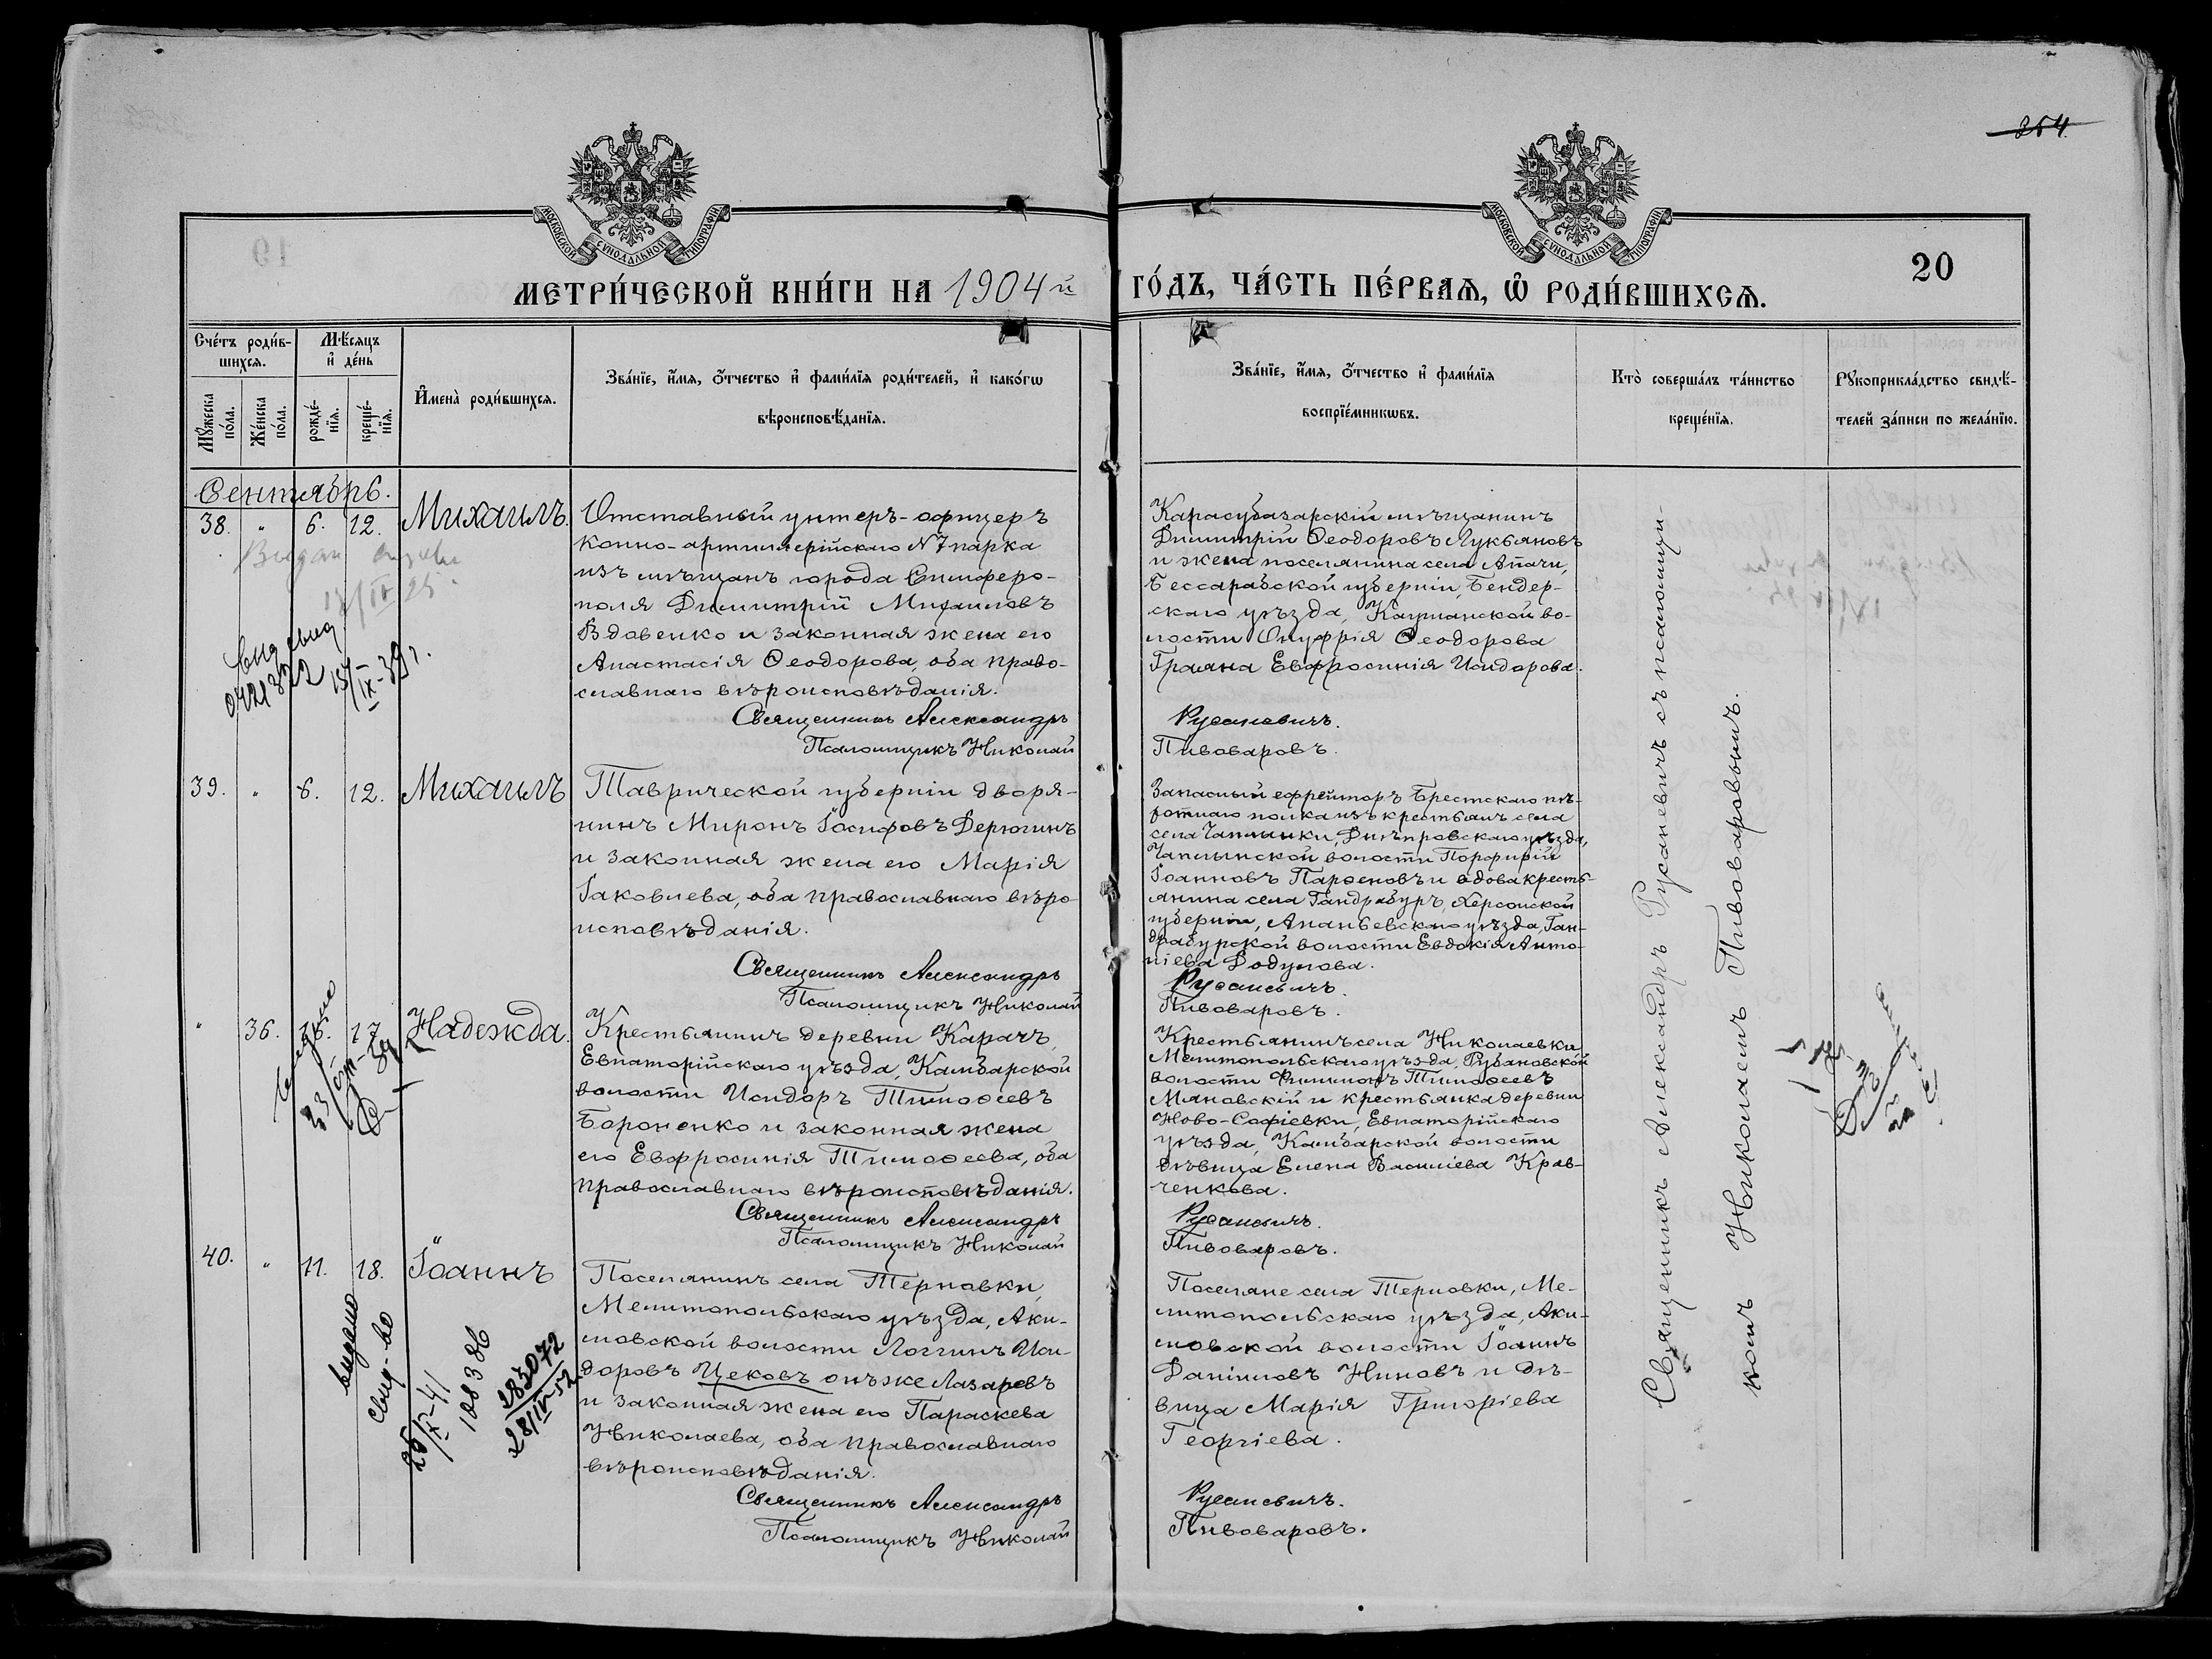 354
МОСКОВСКОЙ СѴНОДАЛЬНОЙ ТИПОГРАФІИ
МОСКОВСКОЙ СѴНОДАЛЬНОЙ ТИПОГРАФІИ
20
МЕТРИ́ЧЕСКОЙ КНИ́ГИ НА 1904й ГО́ДЪ, ЧА́СТЬ ПЕ́РВАѦ, Ѡ҆ РОДИ́ВШИХСѦ.
Сче́тъ роди́в-
шихсѧ.
Мꙋ́жеска по́ла.
Же́нска по́ла.
Мѣ́сѧцъ
и҆ де́нь
рожде́-
нїѧ.
креще́-
нїѧ.
И҆мена̀ роди́вшихсѧ.
Зва́нїе, и҆́мѧ, о҆́тчество и҆ фами́лїѧ роди́телей, и҆ како́гѡ
вѣроисповѣ́данїѧ.
Зва́нїе, и҆́мѧ, о҆́тчество и҆ фами́лїѧ
воспрїе́мникѡвъ.
Кто̀ соверша́лъ та́инство
креще́нїѧ.
Рꙋкоприкла́дство свидѣ́-
телей за́писи по жела́нїю.
Сентябрь.
38. „ 6. 12. Михаилъ.
Отставный унтеръ-офицеръ
конно-артиллерійскаго №7 парка
изъ мѣщанъ города Симферо-
поля Димитрій Михаиловъ
Вдовенко и законная жена его
Анастасія Ѳеодорова, оба право-
славнаго вѣроисповѣданія.
Священникъ Александръ
Псаломщикъ Николай
Карасубазарскій мѣщанинъ
Димитрій Ѳеодоровъ Лукьяновъ
и жена поселянина села
Бессарабской губерніи, Бендер-
скаго уѣзда, Каушанской во-
лости Онуфрія Ѳеодорова
Евфросинія Исидорова.
Русаневичъ.
Пивоваровъ.
0421322 15/IX-39г.
39. „ 6. 12. Михаилъ
Таврической губерніи дворя-
нинъ Миронъ Іосифовъ Дерюгинъ
и законная жена его Марія
Іаковлева, оба православнаго вѣро-
исповѣданія.
Священникъ Александръ
Псаломщикъ Николай
Запасный ефрейторъ Брестскаго пѣ-
хотнаго полка изъ крестьянъ села
села Чаплинки, Днѣпровскаго уѣзда,
Чаплынской волости Порфирій
Іоанновъ Парѳеновъ и вдова кресть-
янина села Гандрабуръ, Херсонской
губерніи, Ананьевскаго уѣзда, Ган-
драбурской волости Евдокія Анто-
ніева Додулова.
Русаневичъ.
Пивоваровъ.
„ 36. 16. 17. Надежда.
Крестьянинъ деревни Карачъ,
Евпаторійскаго уѣзда, Камбарской
волости Исидоръ Тимоѳеевъ
Бороненко и законная жена
его Евфросинія Тимоѳеева, оба
православнаго вѣроисповѣданія.
Священникъ Александръ
Псаломщикъ Николай
Крестьянинъ села Николаевки
Мелитопольскаго уѣзда, Рубановской
волости Филимонъ Тимоѳеевъ
Мановскій и крестьянка деревни
Ново-Софіевки, Евпаторійскаго
уѣзда, Камбарской волости
дѣвица Елена Василіева Крав-
ченкова.
Русаневичъ.
Пивоваровъ.
40. „ 11. 18. Іоаннъ
Поселянинъ села Терновки,
Мелитопольскаго уѣзда, Аки-
мовской волости Логгинъ Иси-
доровъ Цековъ онъ же Лазаревъ
и законная жена его Параскева
Николаева, оба православнаго
вѣроисповѣданія.
Священникъ Александръ
Псаломщикъ Николай
Поселяне села Терновки, Ме-
литопольскаго уѣзда, Аки-
мовской волости Іоаннъ
Даніиловъ Ниновъ и дѣ-
вица Марія Григоріева
Георгіева.
Русаневичъ.
Пивоваровъ.
выдано
свид-во
188386
283072
28/IV-52
Священникъ Александръ Русаневичъ съ псаломщи-
комъ Николаемъ Пивоваровымъ.